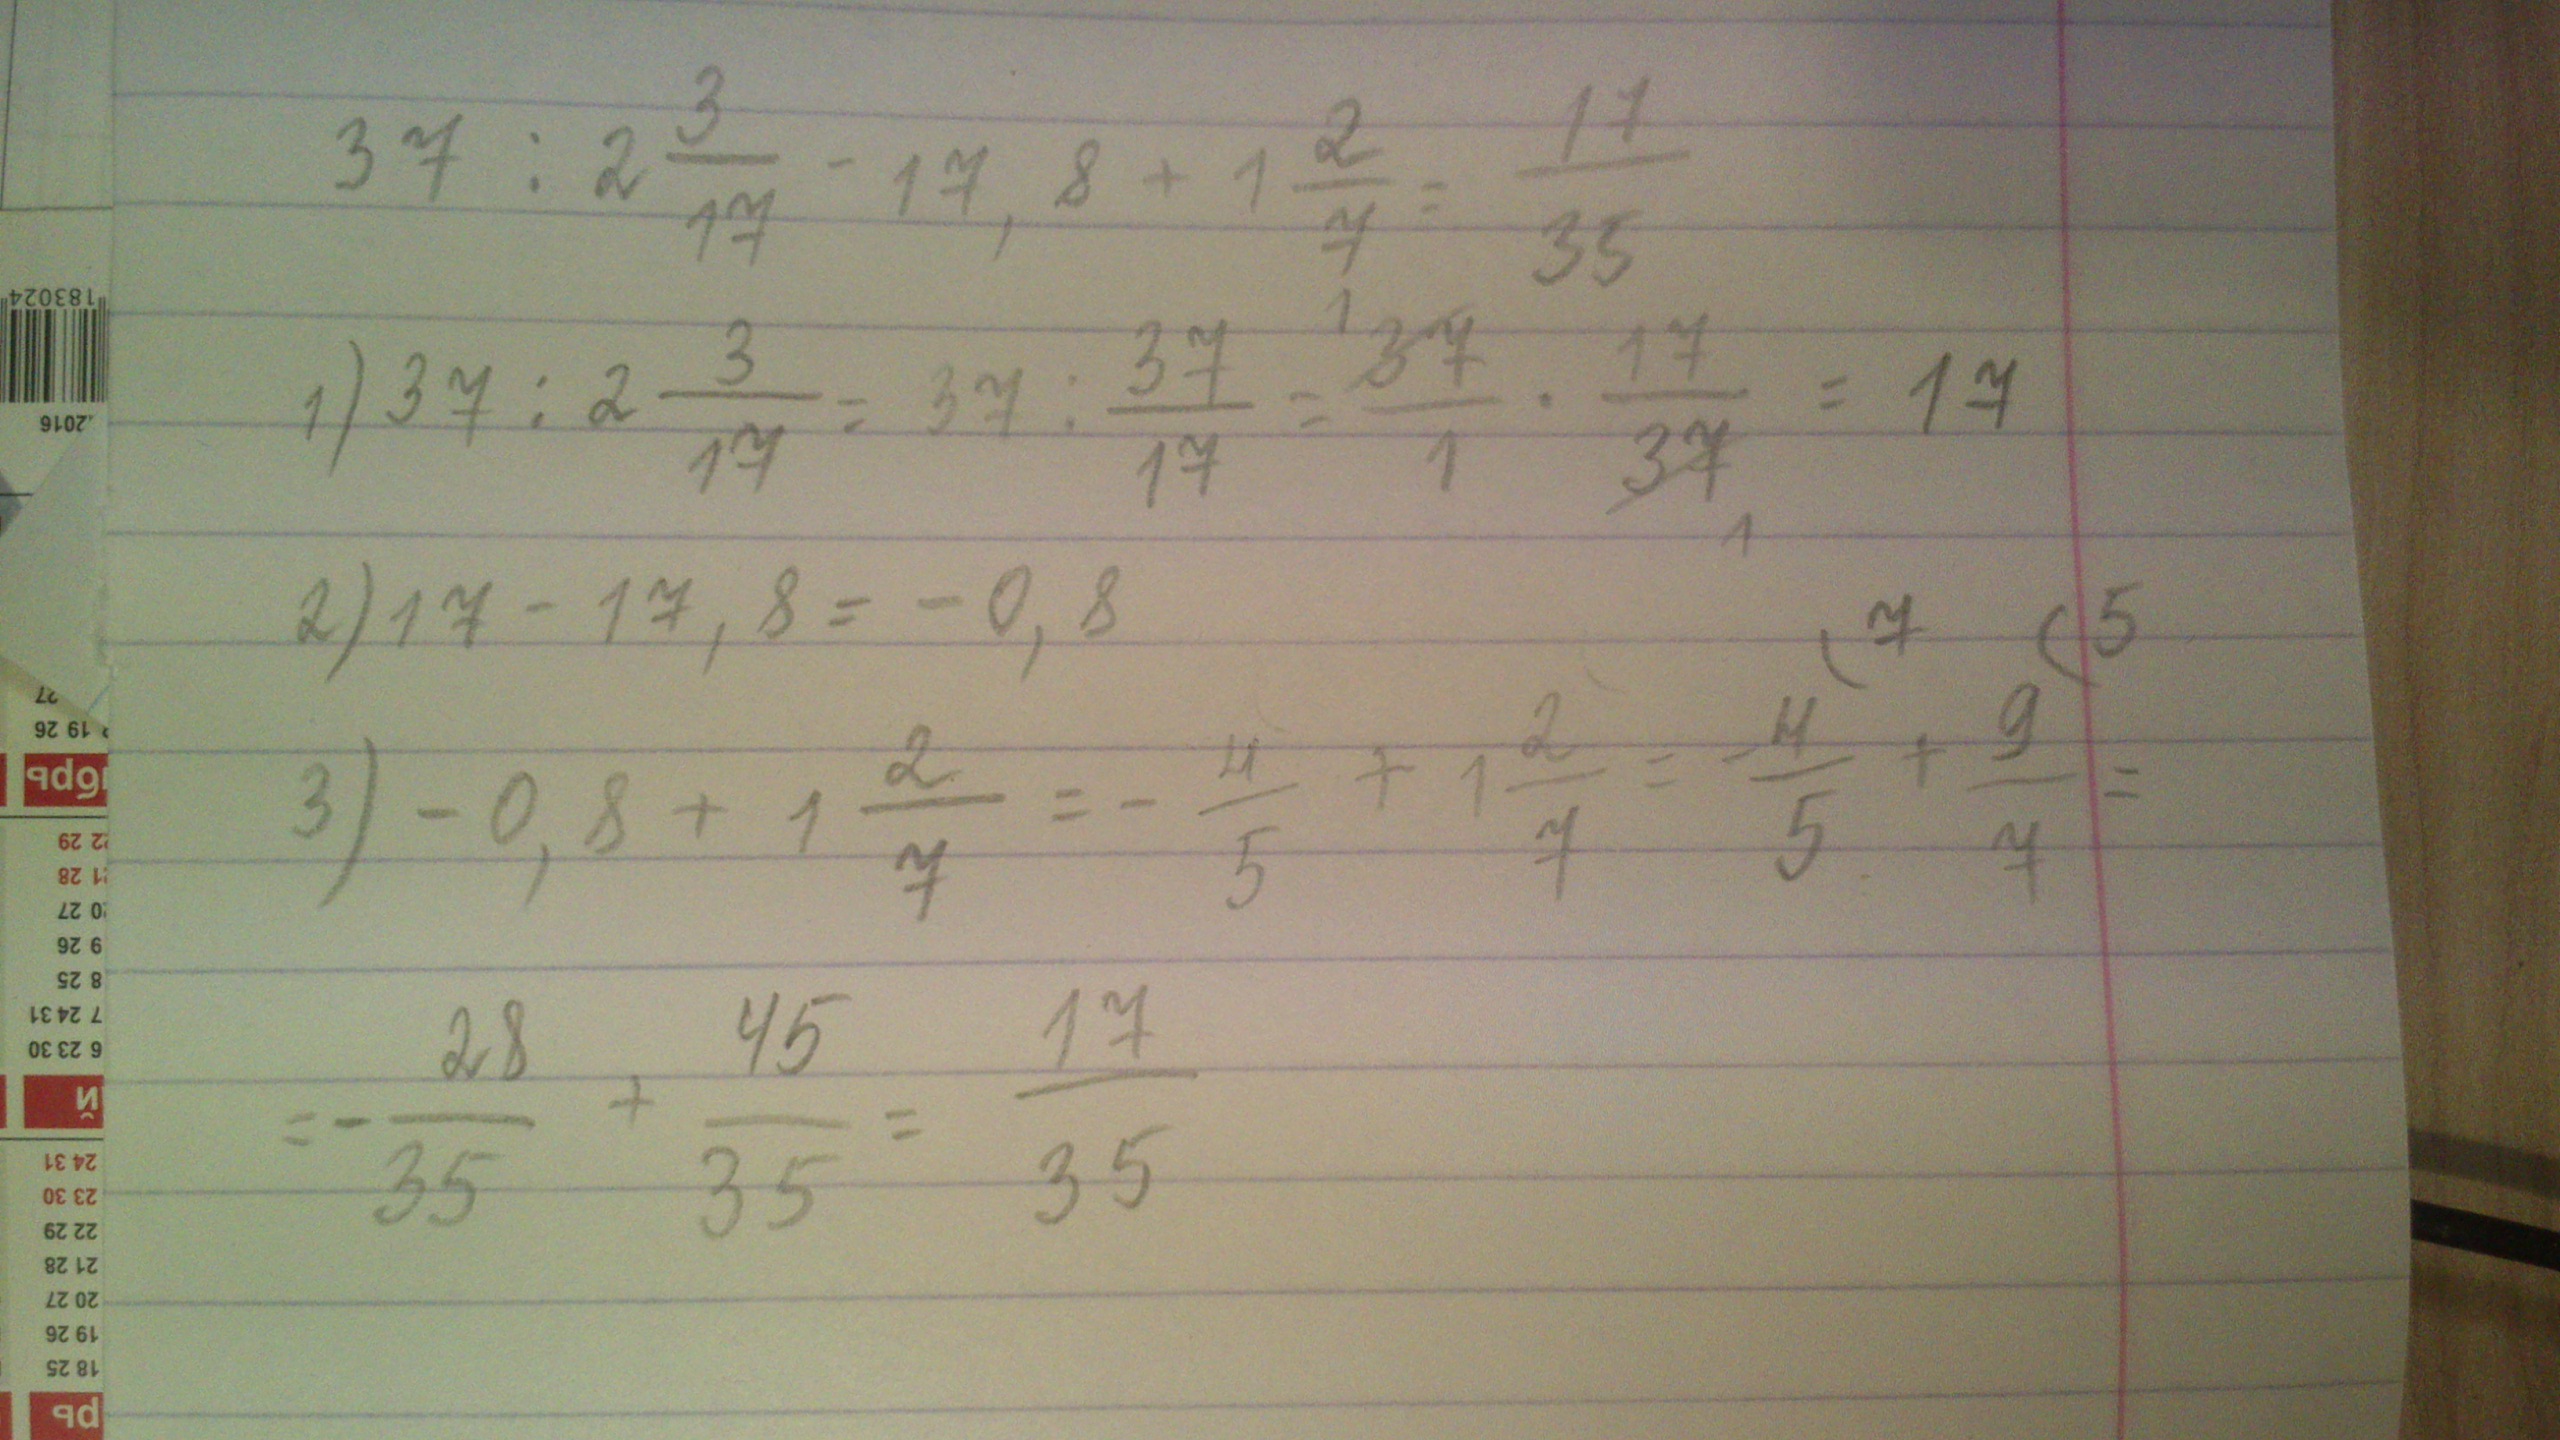 37 : 2 3/17 - 17,8 + 1 2/7 = 17/35
1) 37 : 2 3/17 = 37 : 37/17 = 37/1 · 17/37 = 17
1 1
2) 17 - 17,8 = -0,8
(7 (5
3) -0,8 + 1 2/7 = - 4/5 + 1 2/7 = - 4/5 + 9/7 =
= - 28/35 + 45/35 = 17/35
183024
.2016
27
19 26
брь
22 29
21 28
20 27
9 26
8 25
7 24 31
6 23 30
й
24 31
23 30
22 29
21 28
20 27
19 26
18 25
рь